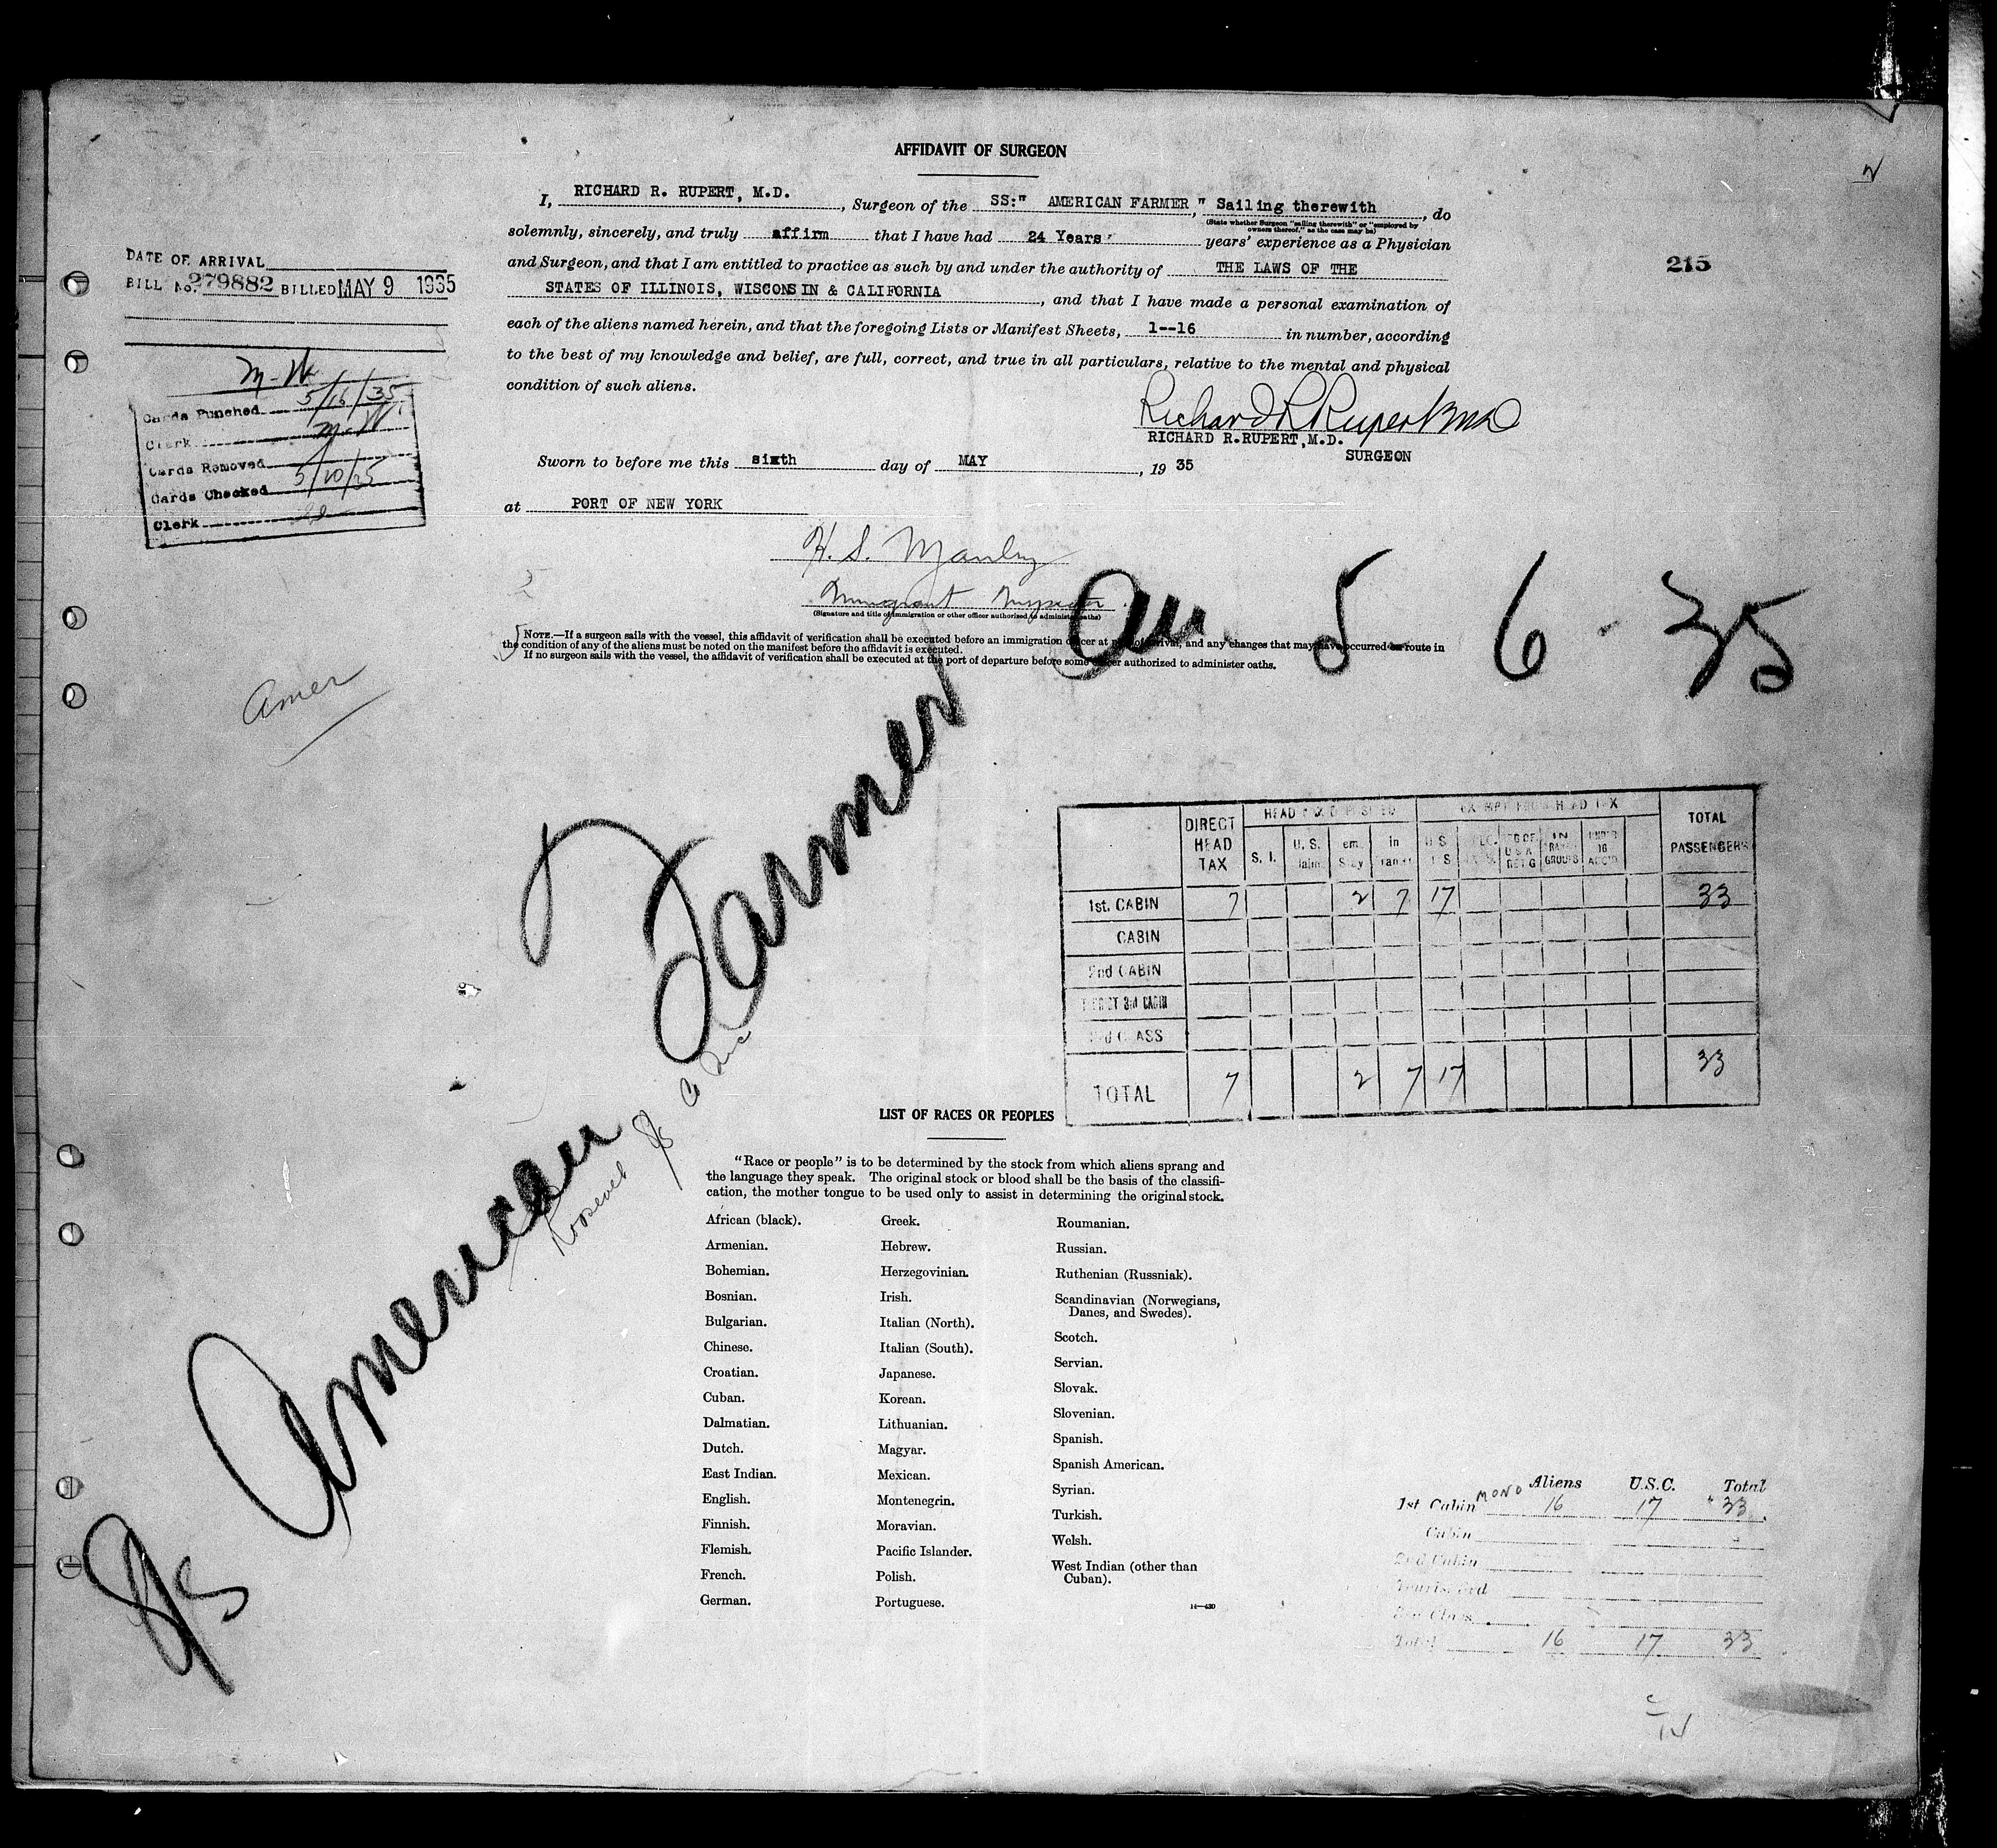 AFFIDAVIT OF SURGEON
I, RICHARD R. RUPERT, M.D., Surgeon of the SS:" AMERICAN FARMER," Sailing therewith, do
(State whether Surgeon "sailing therewith" or "employed by
owners thereof," as the case may be)
solemnly, sincerely, and truly affirm that I have had 24 Years years' experience as a Physician
and Surgeon, and that I am entitled to practice as such by and under the authority of THE LAWS OF THE
STATES OF ILLINOIS, WISCONSIN & CALIFORNIA, and that I have made a personal examination of
each of the aliens named herein, and that the foregoing Lists or Manifest Sheets, 1--16 in number, according
to the best of my knowledge and belief, are full, correct, and true in all particulars, relative to the mental and physical
condition of such aliens.
Richard R Rupert MD
RICHARD R.RUPERT,M.D.
SURGEON
Sworn to before me this sixth day of MAY, 19 35
at PORT OF NEW YORK
H. S. Manley
Immigrant Inspector
(Signature and title of immigration or other officer authorized to administer oaths)
NOTE.—If a surgeon sails with the vessel, this affidavit of verification shall be executed before an immigration officer at port of arrival, and any changes that may have occurred en route in
the condition of any of the aliens must be noted on the manifest before the affidavit is executed.
If no surgeon sails with the vessel, the affidavit of verification shall be executed at the port of departure before some officer authorized to administer oaths.
DATE OF ARRIVAL
BILL No. 279882 BILLED MAY 9 1935
M-W
Cards Punched 5/16/35
Clerk M-W
Cards Removed
Cards Checked 5/20/35
Clerk
215
Amer
5 6 - 35
S/S American Farmer
Roosevelt
DIRECT HEAD TAX
HEAD TAX DEPOSITED
EXEMPT FROM HEAD TAX
TOTAL PASSENGERS
S. I.
U. S.
In
IN
GROUPS
UNDER 16
1st. CABIN 7 2 7 17 33
CABIN
2nd CABIN
3rd CABIN
CLASS
TOTAL 7 2 7 17 33
LIST OF RACES OR PEOPLES
"Race or people" is to be determined by the stock from which aliens sprang and
the language they speak. The original stock or blood shall be the basis of the classifi-
cation, the mother tongue to be used only to assist in determining the original stock.
African (black).
Armenian.
Bohemian.
Bosnian.
Bulgarian.
Chinese.
Croatian.
Cuban.
Dalmatian.
Dutch.
East Indian.
English.
Finnish.
Flemish.
French.
German.
Greek.
Hebrew.
Herzegovinian.
Irish.
Italian (North).
Italian (South).
Japanese.
Korean.
Lithuanian.
Magyar.
Mexican.
Montenegrin.
Moravian.
Pacific Islander.
Polish.
Portuguese.
Roumanian.
Russian.
Ruthenian (Russniak).
Scandinavian (Norwegians,
Danes, and Swedes).
Scotch.
Servian.
Slovak.
Slovenian.
Spanish.
Spanish American.
Syrian.
Turkish.
Welsh.
West Indian (other than
Cuban).
14—430
Aliens U.S.C. Total
1st Cabin MONO 16 17 33
Cabin
2nd Cabin
Tourist 3rd
3rd Class
Total 16 17 33